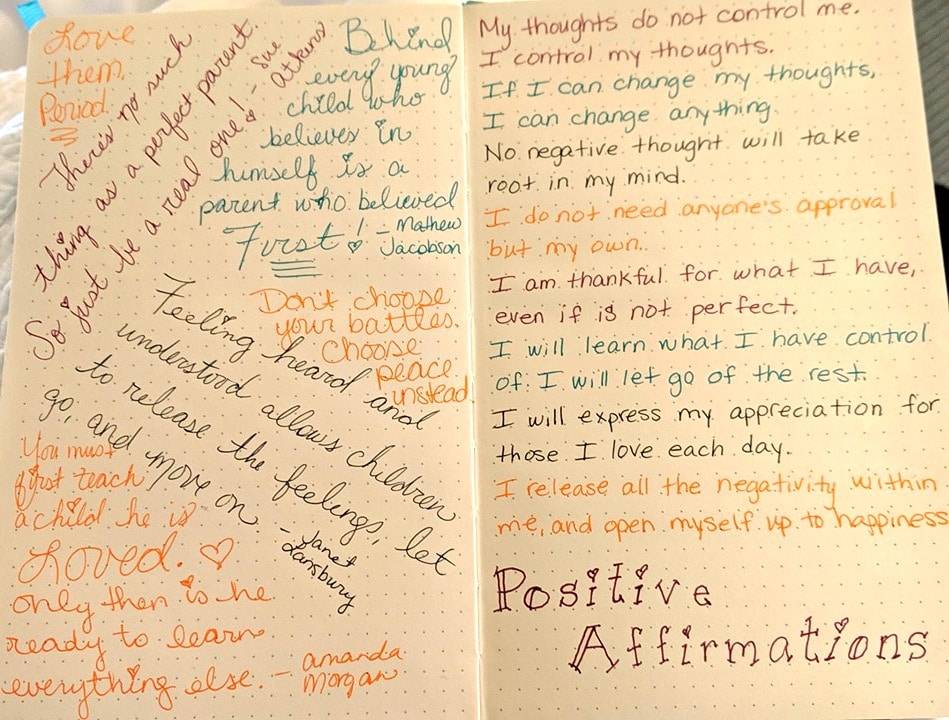 Love
them.
Period.
There's no such
thing as a perfect parent.
So just be a real one! - Sue
Atkins
Behind
every young
child who
believes in
himself is a
parent who believed
First! - Mathew
Jacobson
Don't choose
your battles.
Choose
peace
instead!
Feeling heard and
understood allows children
to release the feelings, let
go, and move on - Janet
Lansbury
You must
first teach
a child he is
Loved.
only then is he
ready to learn
everything else. - amanda
Morgan
My thoughts do not control me.
I control my thoughts.
If I can change my thoughts,
I can change anything.
No negative thought will take
root in my mind.
I do not need anyone's approval
but my own.
I am thankful for what I have,
even if is not perfect.
I will learn what I have control
of: I will let go of the rest.
I will express my appreciation for
those I love each day.
I release all the negativity within
me, and open myself up to happiness
Positive
Affirmations